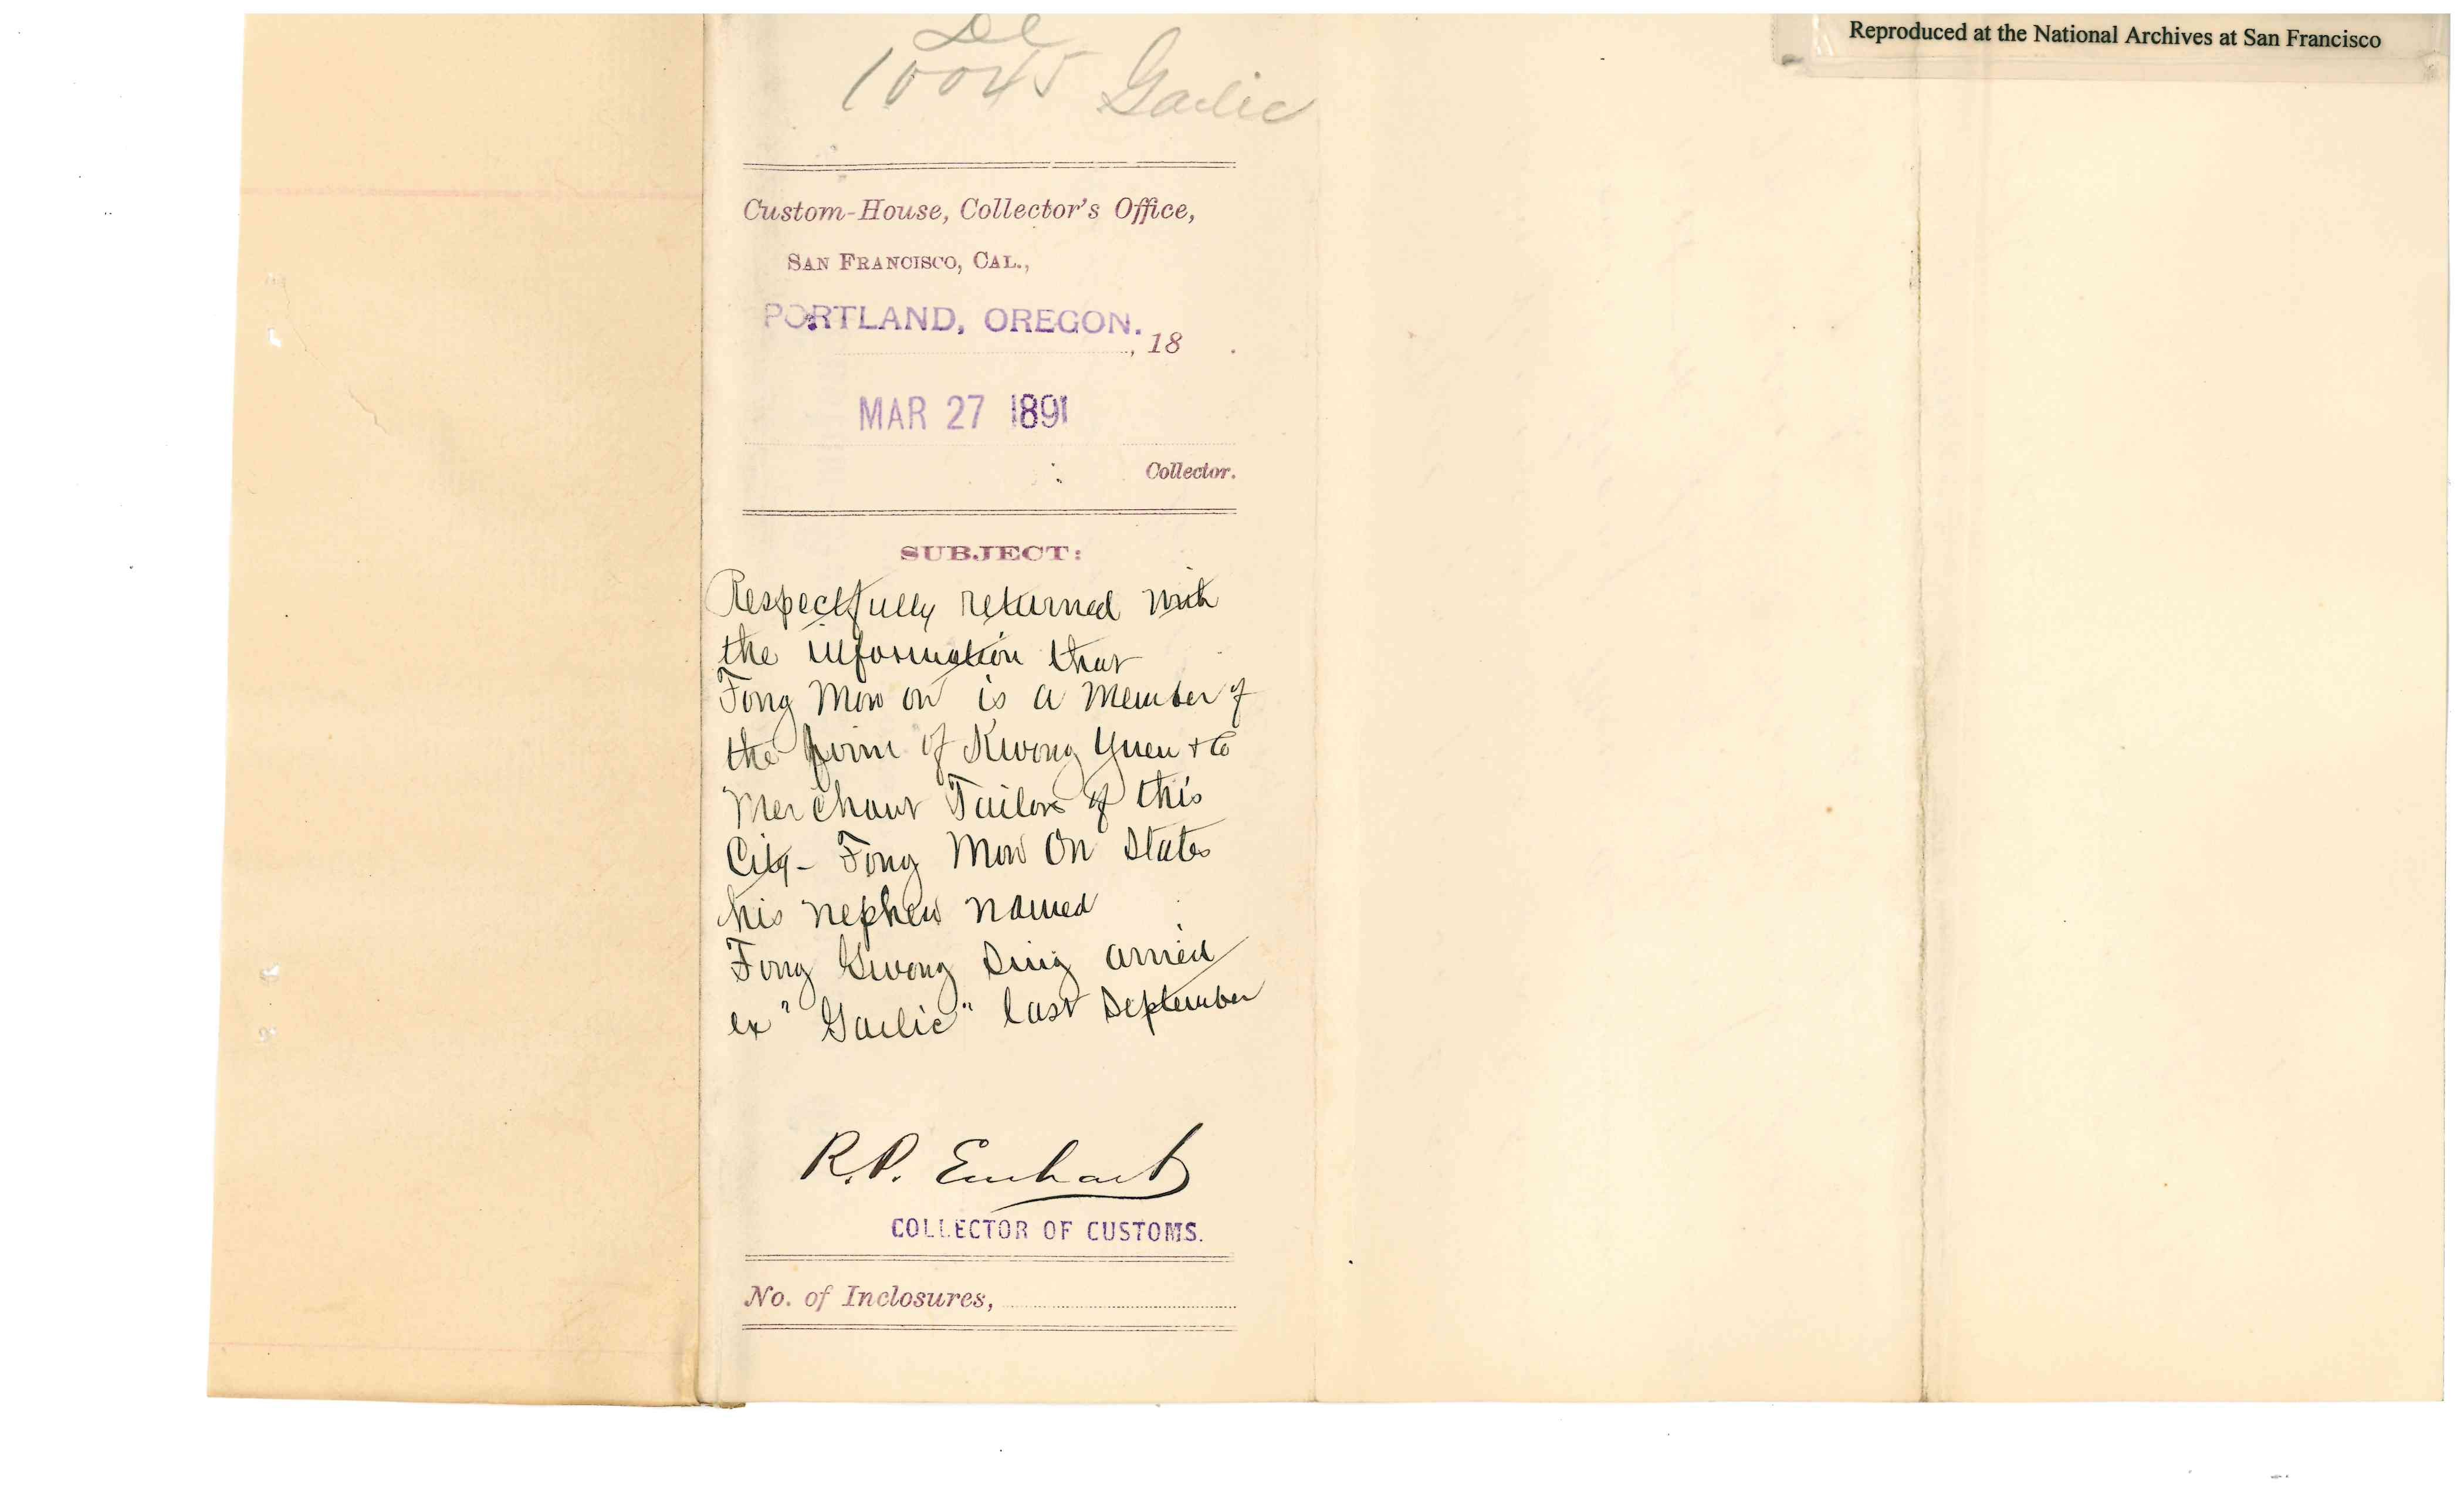 Reproduced at the National Archives at San Francisco
10045 Gaelic
Custom-House, Collector's Office,
SAN FRANCISCO, CAL.,
PORTLAND, OREGON.
, 18 .
MAR 27 1891
Collector.
SUBJECT:
Respectfully returned with
the information that
Fong Mow on is a member of
the firm of Kwong Yuen + Co
Merchant Tailors of this
City - Fong Mow On States
his nephew named
Fong Gwong Sing arried
ex "Gaelic" last September
R.P. Earhart
COLLECTOR OF CUSTOMS.
No. of Inclosures,